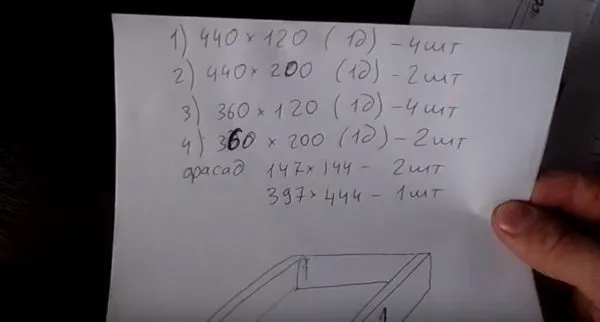 1) 440 × 120 (1д) - 4шт
2) 440 × 200 (1д) - 2шт
3) 360 × 120 (1д) - 4шт
4) 360 × 200 (1д) - 2шт
фасад 147 × 144 - 2шт
397 × 444 - 1шт
1